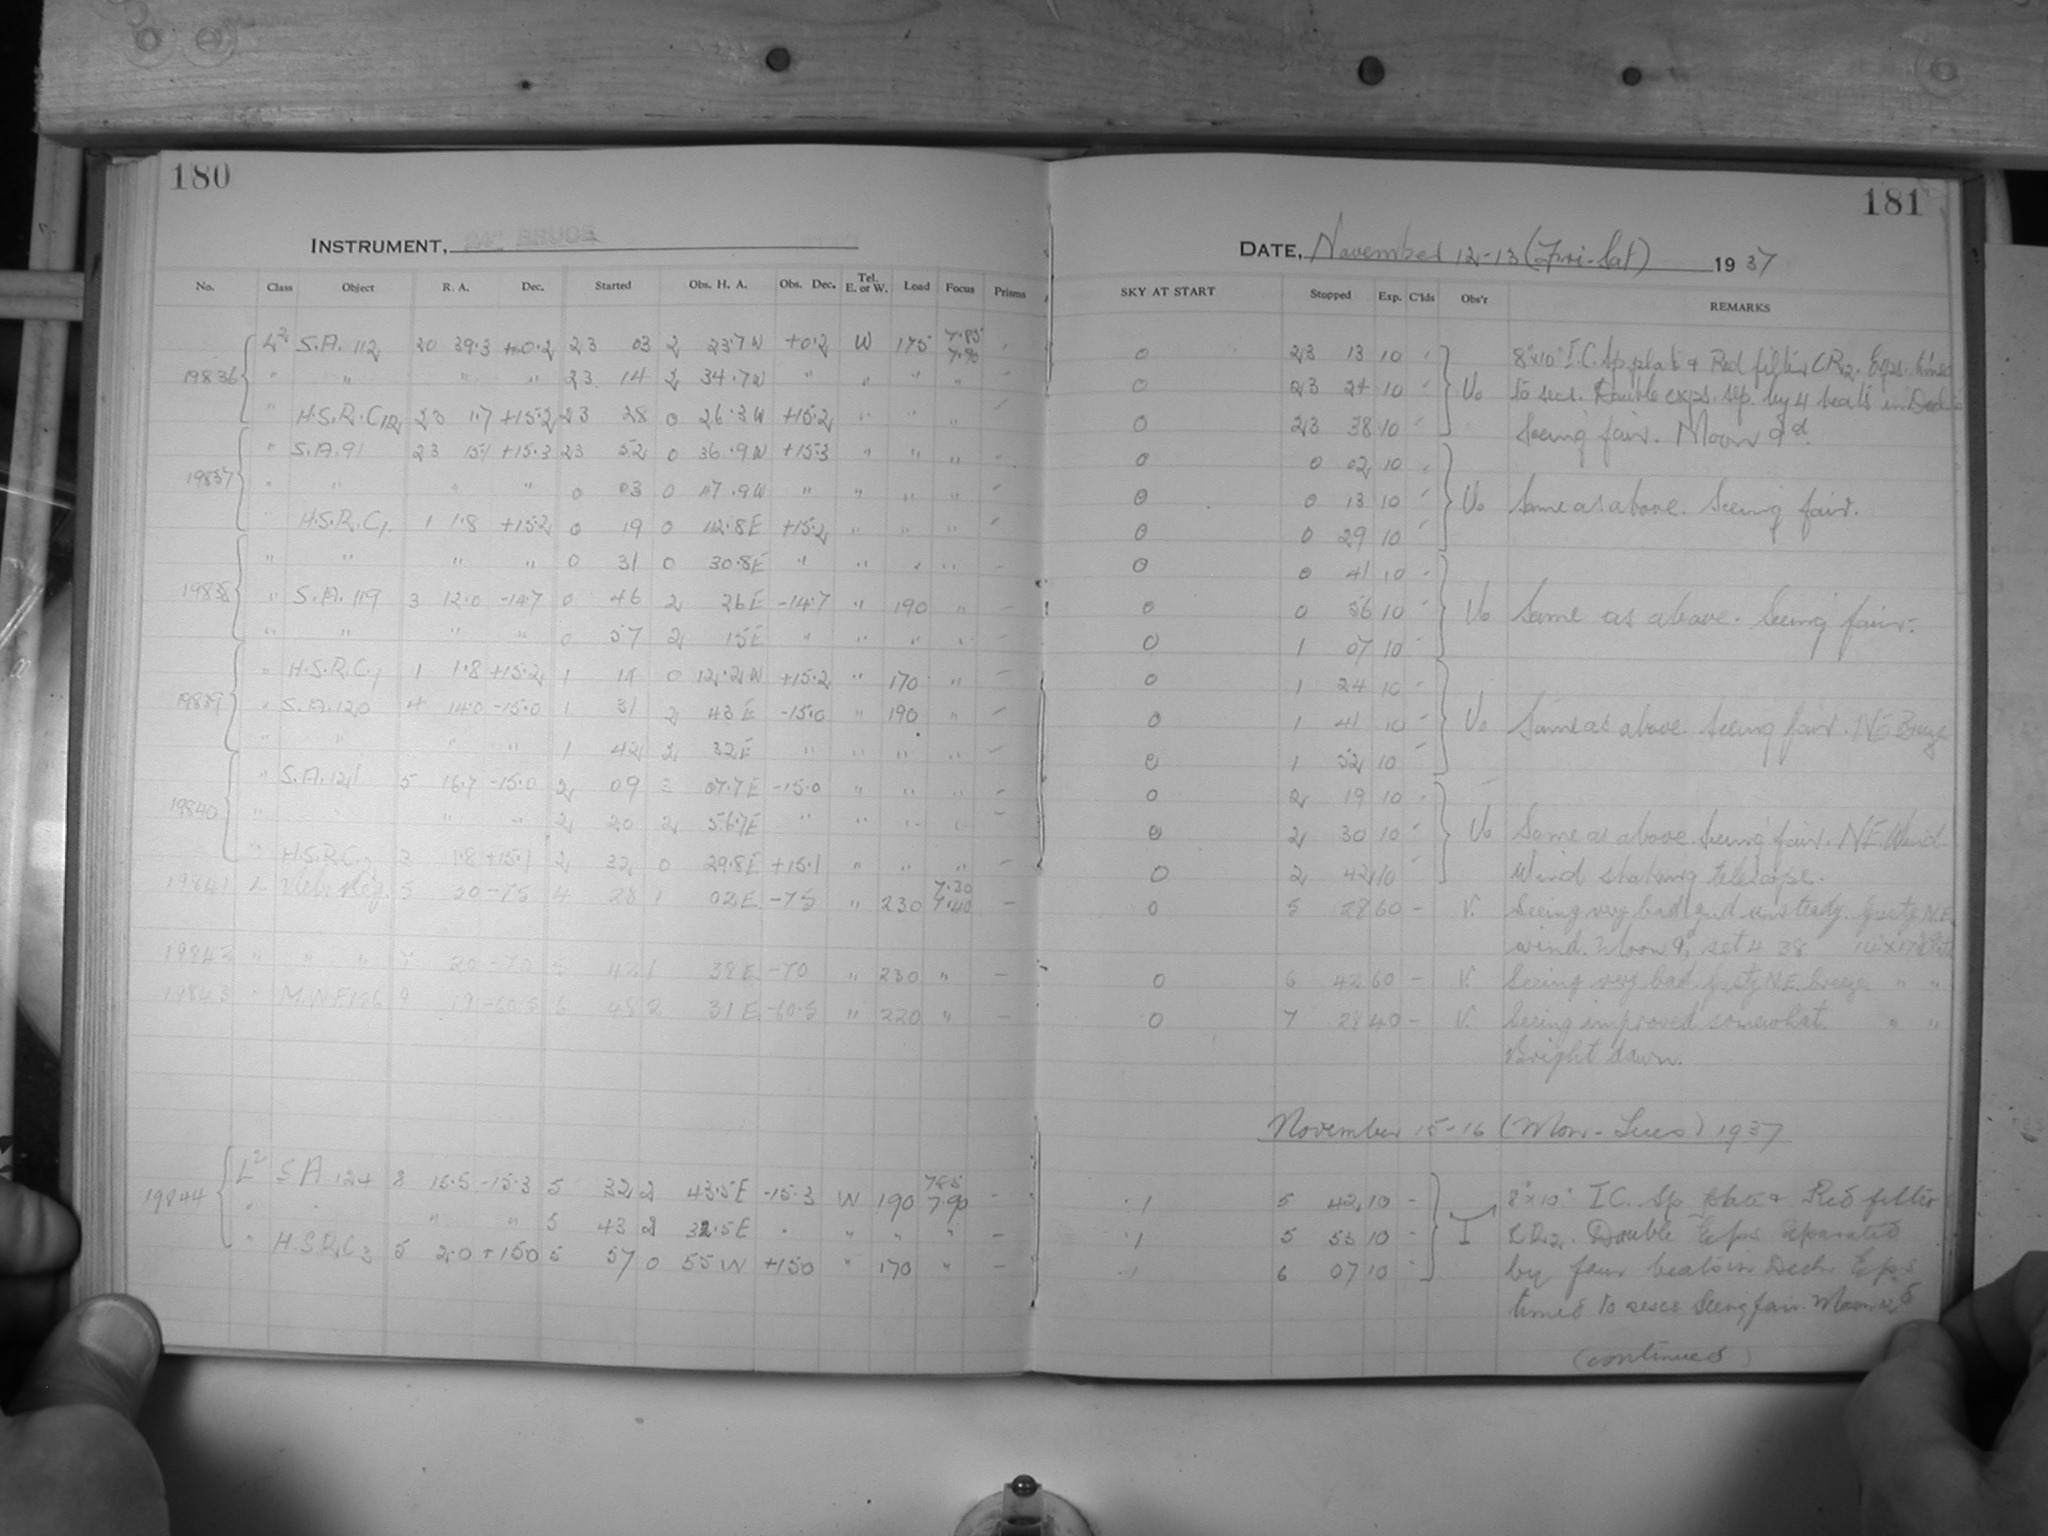 180
INSTRUMENT, 24" BRUCE
No. Class Object R. A. Dec. Started Obs. H. A. Obs. Dec. Tel. E. or W. Load Focus Prisms
19836 L2 S.A. 112 20 39.3 +0.2 23 03 2 23.7W +0.2 W 175 7.85 7.90
" " " " 23 14 2 34.7W " " " "
" H.S.R.C12 23 1.7 +15.2 23 28 0 26.3W +15.2 " " "
19837 " S.A. 91 23 15.1 +15.3 23 52 0 36.9W +15.3 " " "
" " " " 0 03 0 47.9W " " " "
" H.S.R.C1 1 1.8 +15.2 0 19 0 42.8E +15.2 " " "
19838 " " " " 0 31 0 30.8E " " " "
" S.A. 119 3 12.0 -14.7 0 46 2 26E -14.7 " 190 " -
" " " " 0 57 2 15E " " " "
19839 " H.S.R.C1 1 1.8 +15.2 1 14 0 12.2W +15.2 " 170 "
" S.A. 120 4 14.0 -15.0 1 31 2 43E -15.0 " 190 "
" " " " 1 42 2 32E " " " "
19840 " S.A. 121 5 16.7 -15.0 2 09 3 07.7E -15.0 " " "
" " " 2 20 2 56.7E " " " "
" H.S.R.C 3 1.8 +15.1 2 32 0 29.8E +15.1 " " "
19841 L 5 20 -75 4 28 1 02E -75 " 230 7.30 7.40 -
19842 " " " 7 20 -70 5 42 1 38E -70 " 230 " -
19843 " M.W.F. 9 19 -60.5 6 48 2 31E -60.5 " 220 " -
19844 L2 S A 124 8 16.5 -15.3 5 32 2 43.5E -15.3 W 190 7.85 7.90 -
" " " " 5 43 2 32.5E " " " " -
" H.S.R.C3 5 2.0 +15.0 5 57 0 55W +15.0 " 170 " -
181
DATE, November 12-13 (Fri-Sat) 1937
SKY AT START Stopped Exp. C'lds Obs'r REMARKS
0 23 13 10 8"x10" I.C. Sp. plate & Red filter CR2. Exps. timed
0 23 24 10 Vo to secs. Double exps. sep. by 4 beats in Decl.
0 23 38 10 Seeing fair. Moon 9d.
0 0 02 10
0 0 13 10 Vo Same as above. Seeing fair.
0 0 29 10
0 0 41 10
0 0 56 10 Vo Same as above. Seeing fair.
0 1 07 10
0 1 24 10
0 1 41 10 Vo Same as above. Seeing fair. NE Breeze
0 1 52 10
0 2 19 10
0 2 30 10 Vo Same as above. Seeing fair. N.E. Wind.
0 2 42 10 Wind shaking telescope.
0 5 28 60 - V. Seeing very bad and unsteady. Gusty N.E.
wind. Moon 9d, set 4 38 14"x17" Plate
0 6 42 60 - V. Seeing very bad, gusty N.E. breeze " "
0 7 28 40 - V. Seeing improved somewhat. " "
Bright dawn.
November 15-16 (Mon-Tues) 1937
.1 5 42 10 - 8"x10" I C. Sp plate & Red filter
.1 5 53 10 - I CR2. Double Exps separated
.1 6 07 10 - by four beats in Decl. Exps
timed to secs Seeing fair. Moon 12d
(continued)